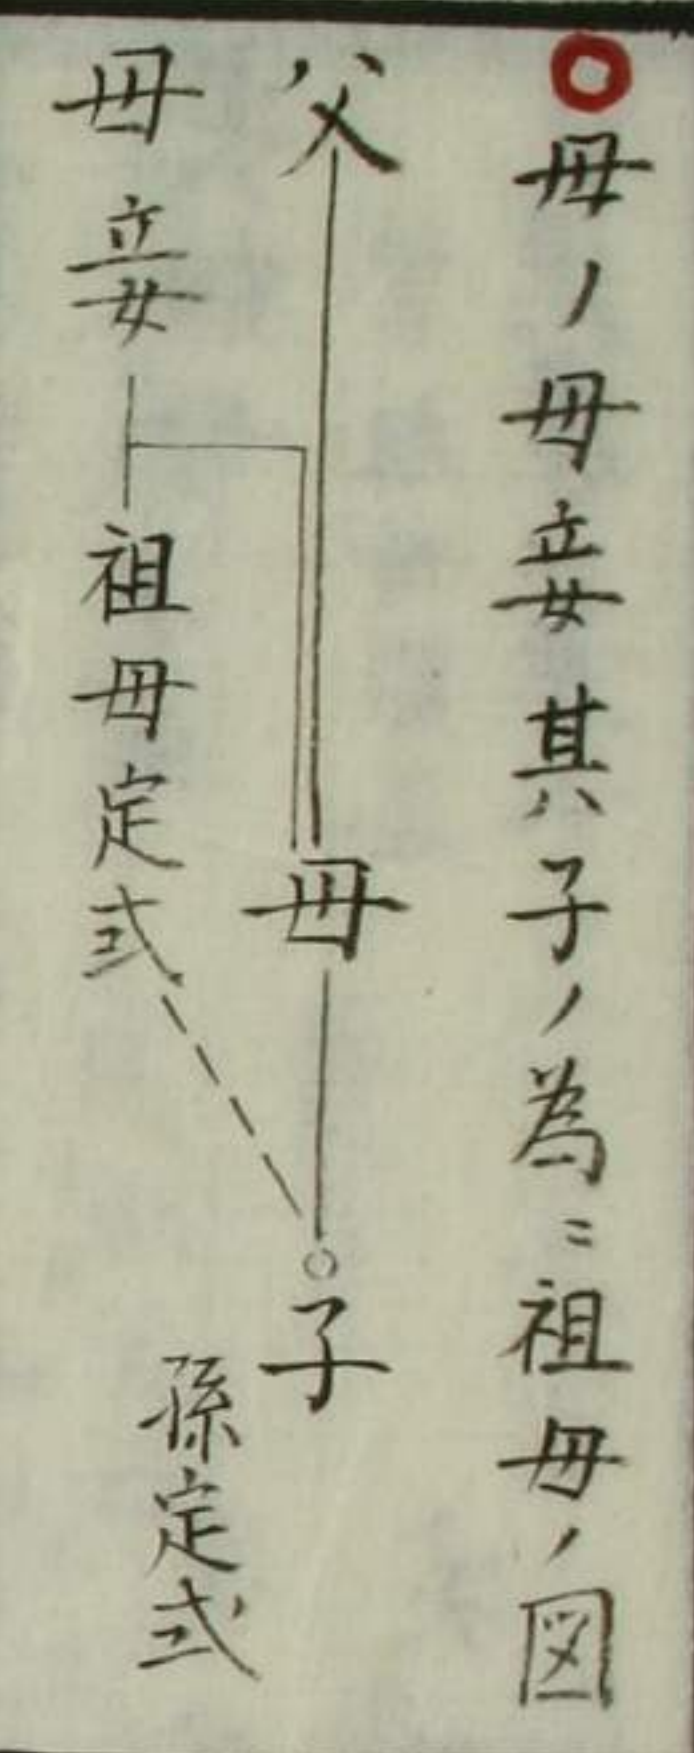 母ノ母妾其子ノ為ニ祖母ノ図
父
母
子
孫定式
母妾
祖母定式